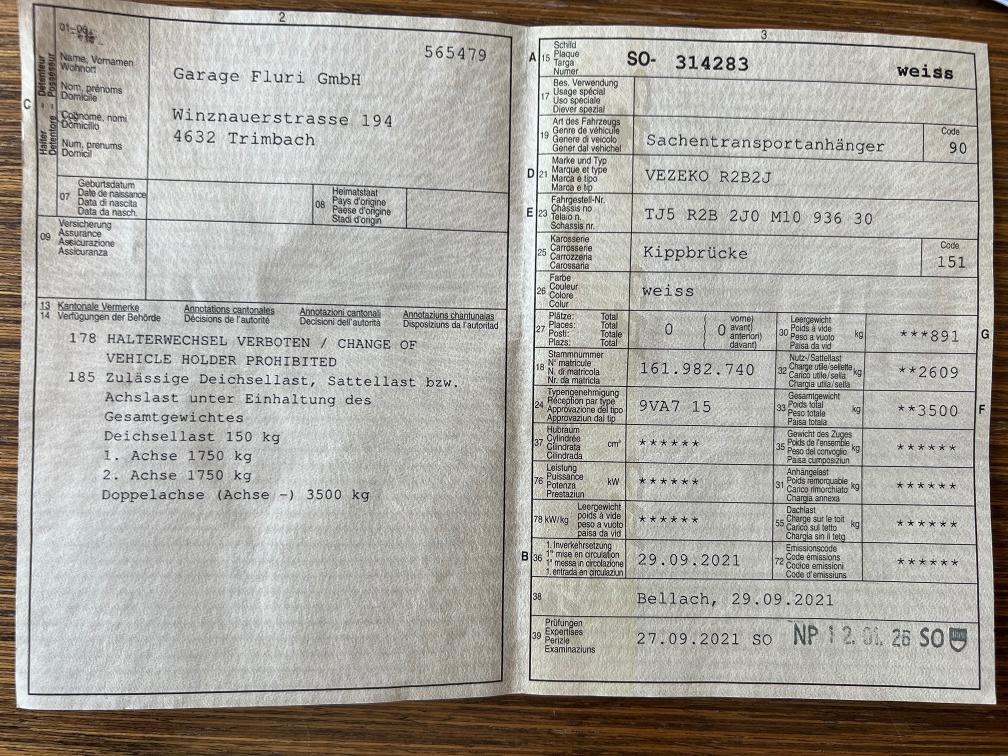 2
01-06.
565479
C
Halter – Détenteur
Detentore – Possessur
Name, Vornamen
Wohnort
Nom, prénoms
Domicile
Cognome, nomi
Domicilio
Num, prenums
Domicil
Garage Fluri GmbH
Winznauerstrasse 194
4632 Trimbach
07
Geburtsdatum
Date de naissance
Data di nascita
Data da nasch.
08
Heimatstaat
Pays d'origine
Paese d'origine
Stadi d'origin
09
Versicherung
Assurance
Assicurazione
Assicuranza
13 Kantonale Vermerke Annotations cantonales Annotazioni cantonali Annotaziuns chantunalas
14 Verfügungen der Behörde Décisions de l'autorité Decisioni dell'autorità Disposiziuns da l'autoritad
178 HALTERWECHSEL VERBOTEN / CHANGE OF
VEHICLE HOLDER PROHIBITED
185 Zulässige Deichsellast, Sattellast bzw.
Achslast unter Einhaltung des
Gesamtgewichtes
Deichsellast 150 kg
1. Achse 1750 kg
2. Achse 1750 kg
Doppelachse (Achse -) 3500 kg
3
A 15
Schild
Plaque
Targa
Numer
SO- 314283 weiss
17
Bes. Verwendung
Usage spécial
Uso speciale
Diever spezial
19
Art des Fahrzeugs
Genre de véhicule
Genere di veicolo
Gener dal vehichel
Sachentransportanhänger
Code
90
D 21
Marke und Typ
Marque et type
Marca e tipo
Marca e tip
VEZEKO R2B2J
E 23
Fahrgestell-Nr.
Châssis no
Telaio n.
Schassis nr.
TJ5 R2B 2J0 M10 936 30
25
Karosserie
Carrosserie
Carrozzeria
Carossaria
Kippbrücke
Code
151
26
Farbe
Couleur
Colore
Colur
weiss
27
Plätze: Total
Places: Total
Posti: Totale
Plazs: Total
0
0
vorne)
avant)
anteriori)
davant)
30
Leergewicht
Poids à vide
Peso a vuoto
Paisa da vid
kg
***891
G
18
Stammnummer
N° matricule
N. di matricola
Nr. da matricla
161.982.740
32
Nutz-/Sattellast
Charge utile/sellette
Carico utile/sella
Chargia utila/sella
kg
**2609
24
Typengenehmigung
Réception par type
Approvazione del tipo
Approvaziun dal tip
9VA7 15
33
Gesamtgewicht
Poids total
Peso totale
Paisa totala
kg
**3500
F
37
Hubraum
Cylindrée
Cilindrata
Cilindrada
cm³
******
35
Gewicht des Zuges
Poids de l'ensemble
Peso del convoglio
Paisa cumposiziun
kg
******
76
Leistung
Puissance
Potenza
Prestaziun
kW
******
31
Anhängelast
Poids remorquable
Carico rimorchiato
Chargia annexa
kg
******
78 kW/kg
Leergewicht
poids à vide
peso a vuoto
paisa da vid
******
55
Dachlast
Charge sur le toit
Carico sul tetto
Chargia sin il tetg
kg
******
B 36
1. Inverkehrsetzung
1re mise en circulation
1a messa in circolazione
1. entrada en circulaziun
29.09.2021
72
Emissionscode
Code émissions
Codice emissioni
Code d'emissiuns
******
38
Bellach, 29.09.2021
39
Prüfungen
Expertises
Perizie
Examinaziuns
27.09.2021 SO NP 12.01.26 SO